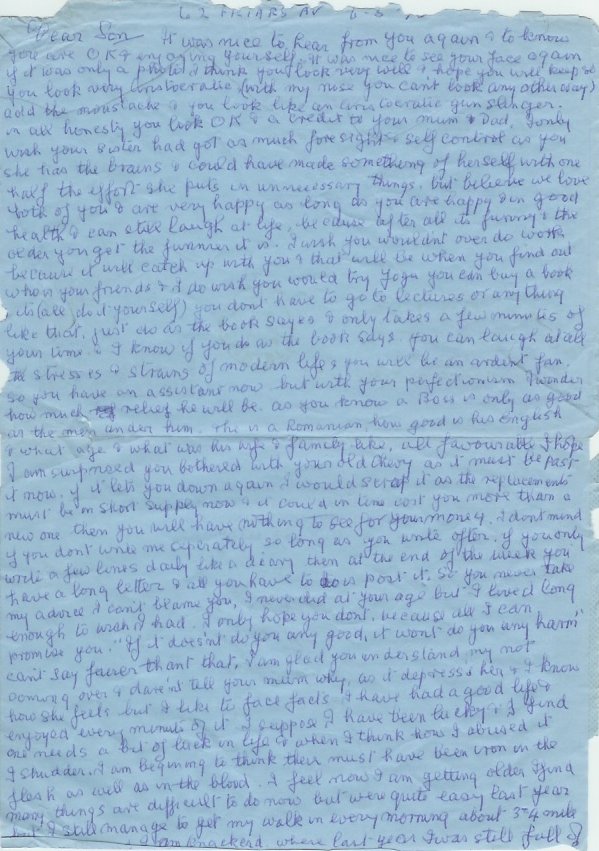 62 FRIARS AV
Dear Son It was nice to hear from you again & to know
you are OK & enjoying yourself. It was nice to see your face again
if it was only a photo I think you look very well & hope you will keep so
you look very aristocratic (with my nose you can't look any other way)
add the moustache & you look like an aristocratic gun slinger.
in all honesty you look OK & a credit to your mum & Dad. I only
wish your sister had got as much foresight & self control as you
she has the brains & could have made something of herself with one
half the effort she puts in unnecessary things. but believe we love
both of you & are very happy as long as you are happy & in good
health & can still laugh at life, because after all its funny & the
older you get the funnier it is. I wish you wouldnt over do work
because it will catch up with you & that will be when you find out
who is your friends & I do wish you would try Yoga you can buy a book
its (all do it yourself) you dont have to go to lectures or any thing
like that, just do as the book sayes & only takes a few minutes of
your time. & I know if you do as the book says you can laugh at all
the stresses & strains of modern life & you will be an ardent fan.
so you have an assistant now but with your perfectionism I wonder
how much relief he will be. as you know a Boss is only as good
as the men under him. he is a Romanian how good is his english
& what age & what was his wife & family like, all favourable I hope
I am surprised you bothered with your old Chevy as it must be past
it now. if it lets you down again I would scrap it as the replacements
must be in short supply now & it could in time cost you more than a
new one then you will have nothing to see for your money. I dont mind
if you dont write me seperately so long as you write often, if you only
write a few lines daily like a diary then at the end of the week you
have a long letter & all you have to do is post it. So you never take
my advice I can't blame you, I never did at your age but I lived long
enough to wish I had. I only hope you dont, because all I can
promise you. "If it doesn't do you any good, it wont do you any harm"
cant say fairer than that, I am glad you understand my not
coming over & dare'nt tell your mum why, as it depress's her & I know
how she feels but I like to face facts I have had a good life &
enjoyed every minute of it I suppose I have been lucky & I find
one needs a bit of luck in life & when I think how I abused it
I shudder. I am begining to think their must have been iron in the
flesh as well as in the blood. I feel now I am getting older I find
many things are difficult to do now but were quite easy last year
but I still manage to get my walk in every morning about 3-4 mile
I am knackerd, where last year I was still full of